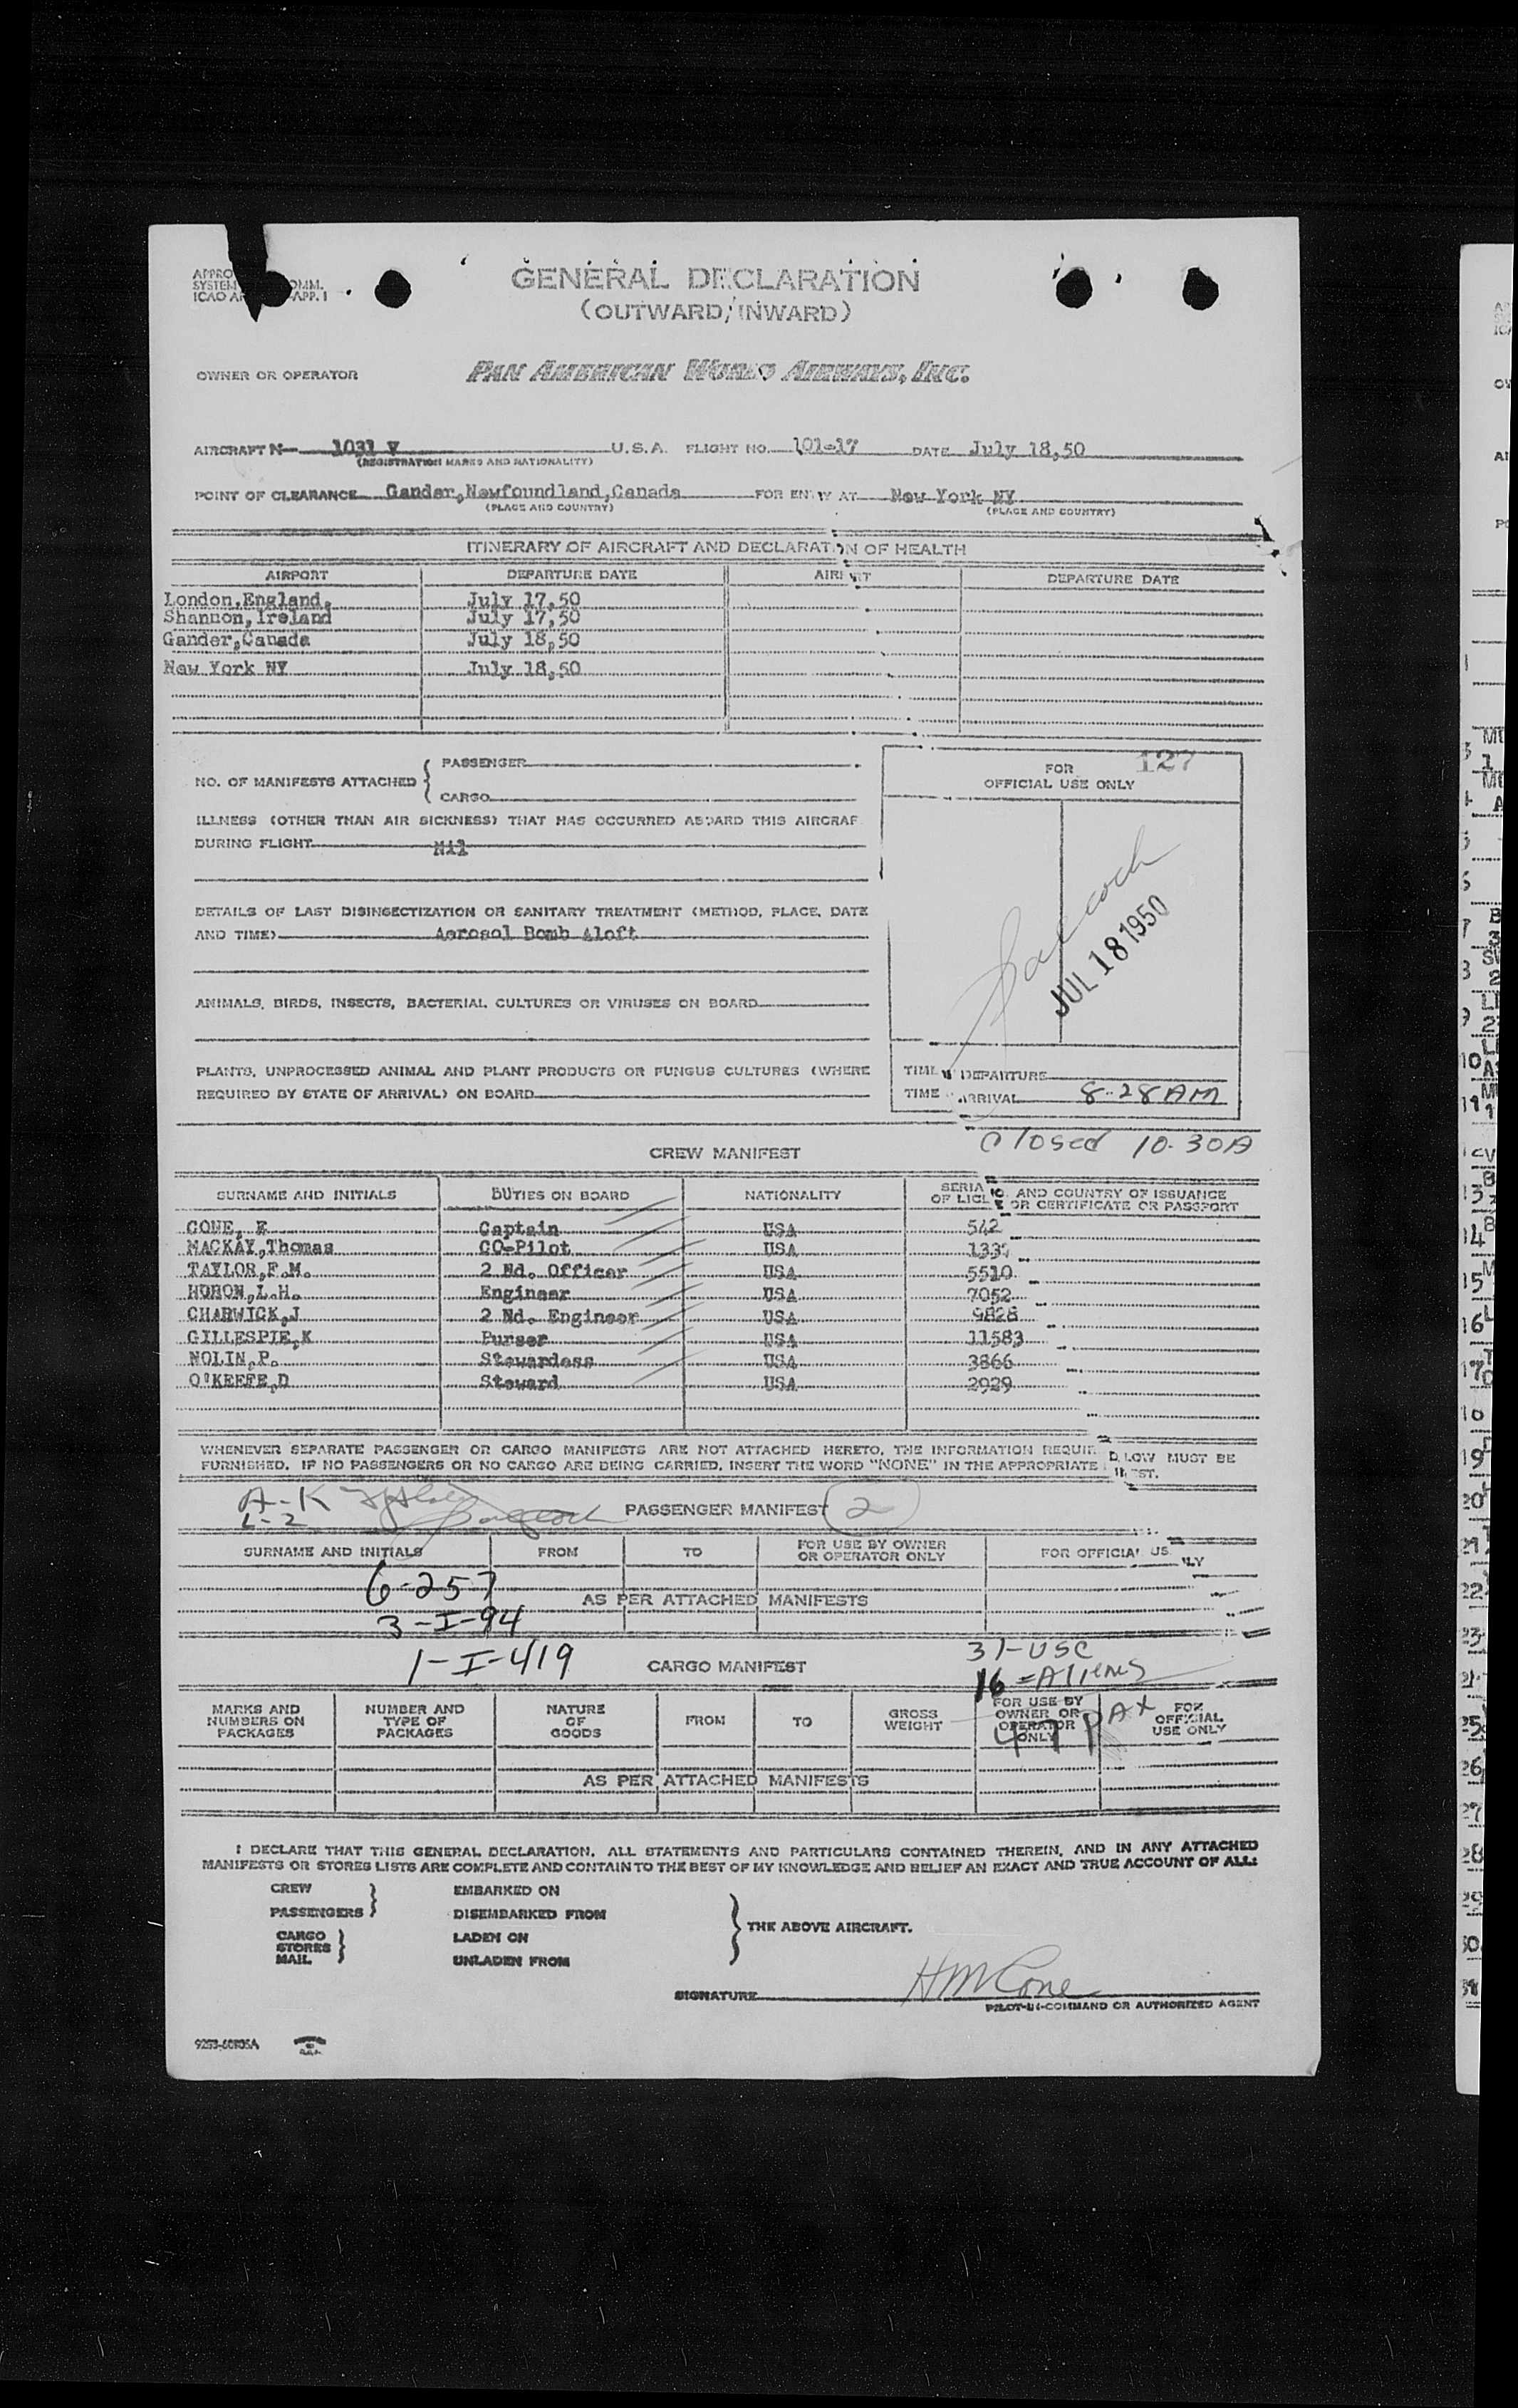 GENERAL DECLARATION
(OUTWARD/INWARD)
OWNER OR OPERATOR PAN AMERICAN WORLD AIRWAYS, INC.
AIRCRAFT N- 1031 V U.S.A. FLIGHT NO. 101-17 DATE July 18,50
(REGISTRATION MARKS AND NATIONALITY)
POINT OF CLEARANCE Gander,Newfoundland,Canada FOR ENTRY AT New York NY
(PLACE AND COUNTRY) (PLACE AND COUNTRY)
ITINERARY OF AIRCRAFT AND DECLARATION OF HEALTH
AIRPORT DEPARTURE DATE AIRPORT DEPARTURE DATE
London,England, July 17,50
Shannon,Ireland July 17,50
Gander,Canada July 18,50
New York NY July 18,50
NO. OF MANIFESTS ATTACHED { PASSENGER
CARGO
FOR 127
OFFICIAL USE ONLY
ILLNESS (OTHER THAN AIR SICKNESS) THAT HAS OCCURRED ABOARD THIS AIRCRAF
DURING FLIGHT Nil
DETAILS OF LAST DISINSECTIZATION OR SANITARY TREATMENT (METHOD, PLACE, DATE
AND TIME) Aerosol Bomb Aloft
JUL 18 1950
ANIMALS, BIRDS, INSECTS, BACTERIAL CULTURES OR VIRUSES ON BOARD
PLANTS, UNPROCESSED ANIMAL AND PLANT PRODUCTS OR FUNGUS CULTURES (WHERE
REQUIRED BY STATE OF ARRIVAL) ON BOARD
TIME DEPARTURE
TIME ARRIVAL 8-28 AM
Closed 10-30A
CREW MANIFEST
SURNAME AND INITIALS DUTIES ON BOARD NATIONALITY SERIA NO. AND COUNTRY OF ISSUANCE
OF LICE E OR CERTIFICATE OR PASSPORT
CONE, E Captain USA 542
MACKAY,Thomas CO-Pilot USA 133
TAYLOR,F.M. 2 Nd. Officer USA 5510
HORON,L.H. Engineer USA 7052
CHARWICK,J 2 Nd. Engineer USA 9828
GILLESPIE,K Purser USA 11583
NOLIN,P. Stewardess USA 3866
O'KEEFE,D Steward USA 2929
WHENEVER SEPARATE PASSENGER OR CARGO MANIFESTS ARE NOT ATTACHED HERETO, THE INFORMATION REQUIR D LOW MUST BE
FURNISHED. IF NO PASSENGERS OR NO CARGO ARE BEING CARRIED, INSERT THE WORD "NONE" IN THE APPROPRIATE
A-K
L-Z
PASSENGER MANIFEST 2
SURNAME AND INITIALS FROM TO FOR USE BY OWNER
OR OPERATOR ONLY FOR OFFICIAL US LY
6-257
AS PER ATTACHED MANIFESTS
3-I-94
1-I-419 CARGO MANIFEST
31-USC
16=Aliens
47 PAX
MARKS AND
NUMBERS ON
PACKAGES NUMBER AND
TYPE OF
PACKAGES NATURE
OF
GOODS FROM TO GROSS
WEIGHT FOR USE BY
OWNER OR
OPERATOR
ONLY FOR
OFFICIAL
USE ONLY
AS PER ATTACHED MANIFESTS
I DECLARE THAT THIS GENERAL DECLARATION, ALL STATEMENTS AND PARTICULARS CONTAINED THEREIN, AND IN ANY ATTACHED
MANIFESTS OR STORES LISTS ARE COMPLETE AND CONTAIN TO THE BEST OF MY KNOWLEDGE AND BELIEF AN EXACT AND TRUE ACCOUNT OF ALL:
CREW EMBARKED ON
PASSENGERS DISEMBARKED FROM
THE ABOVE AIRCRAFT.
CARGO LADEN ON
STORES
MAIL UNLADEN FROM
SIGNATURE HM Cone
PILOT-IN-COMMAND OR AUTHORIZED AGENT